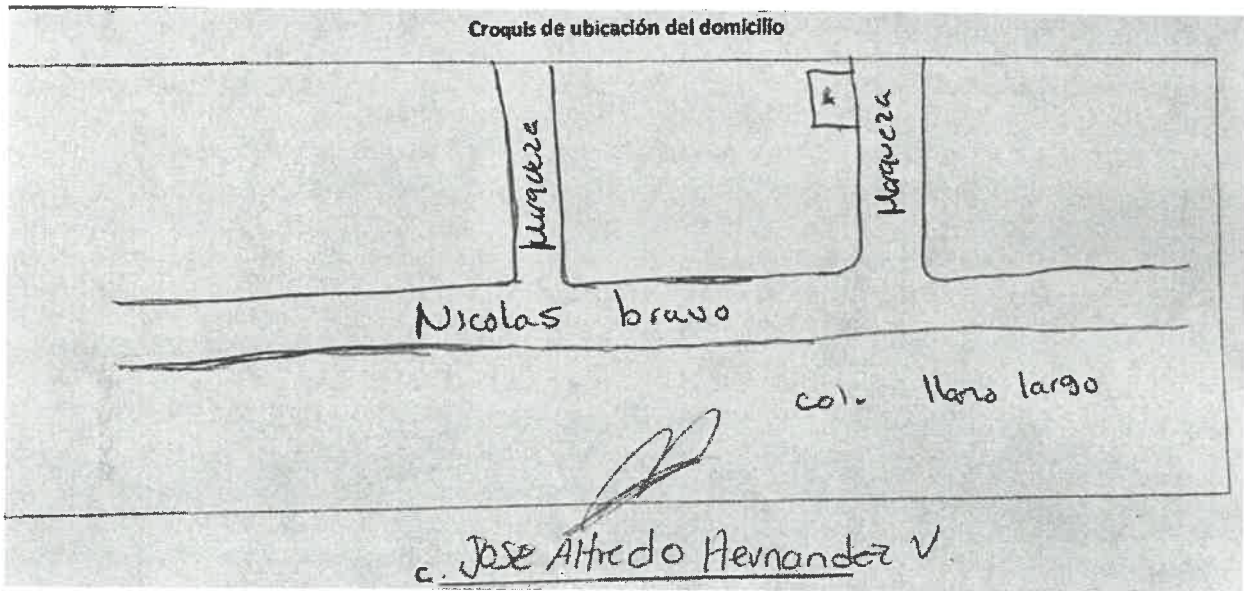 Croquis de ubicación del domicilio
Marqueza
Nicolas bravo
col. llano largo
c. Jose Alfredo Hernandez V.